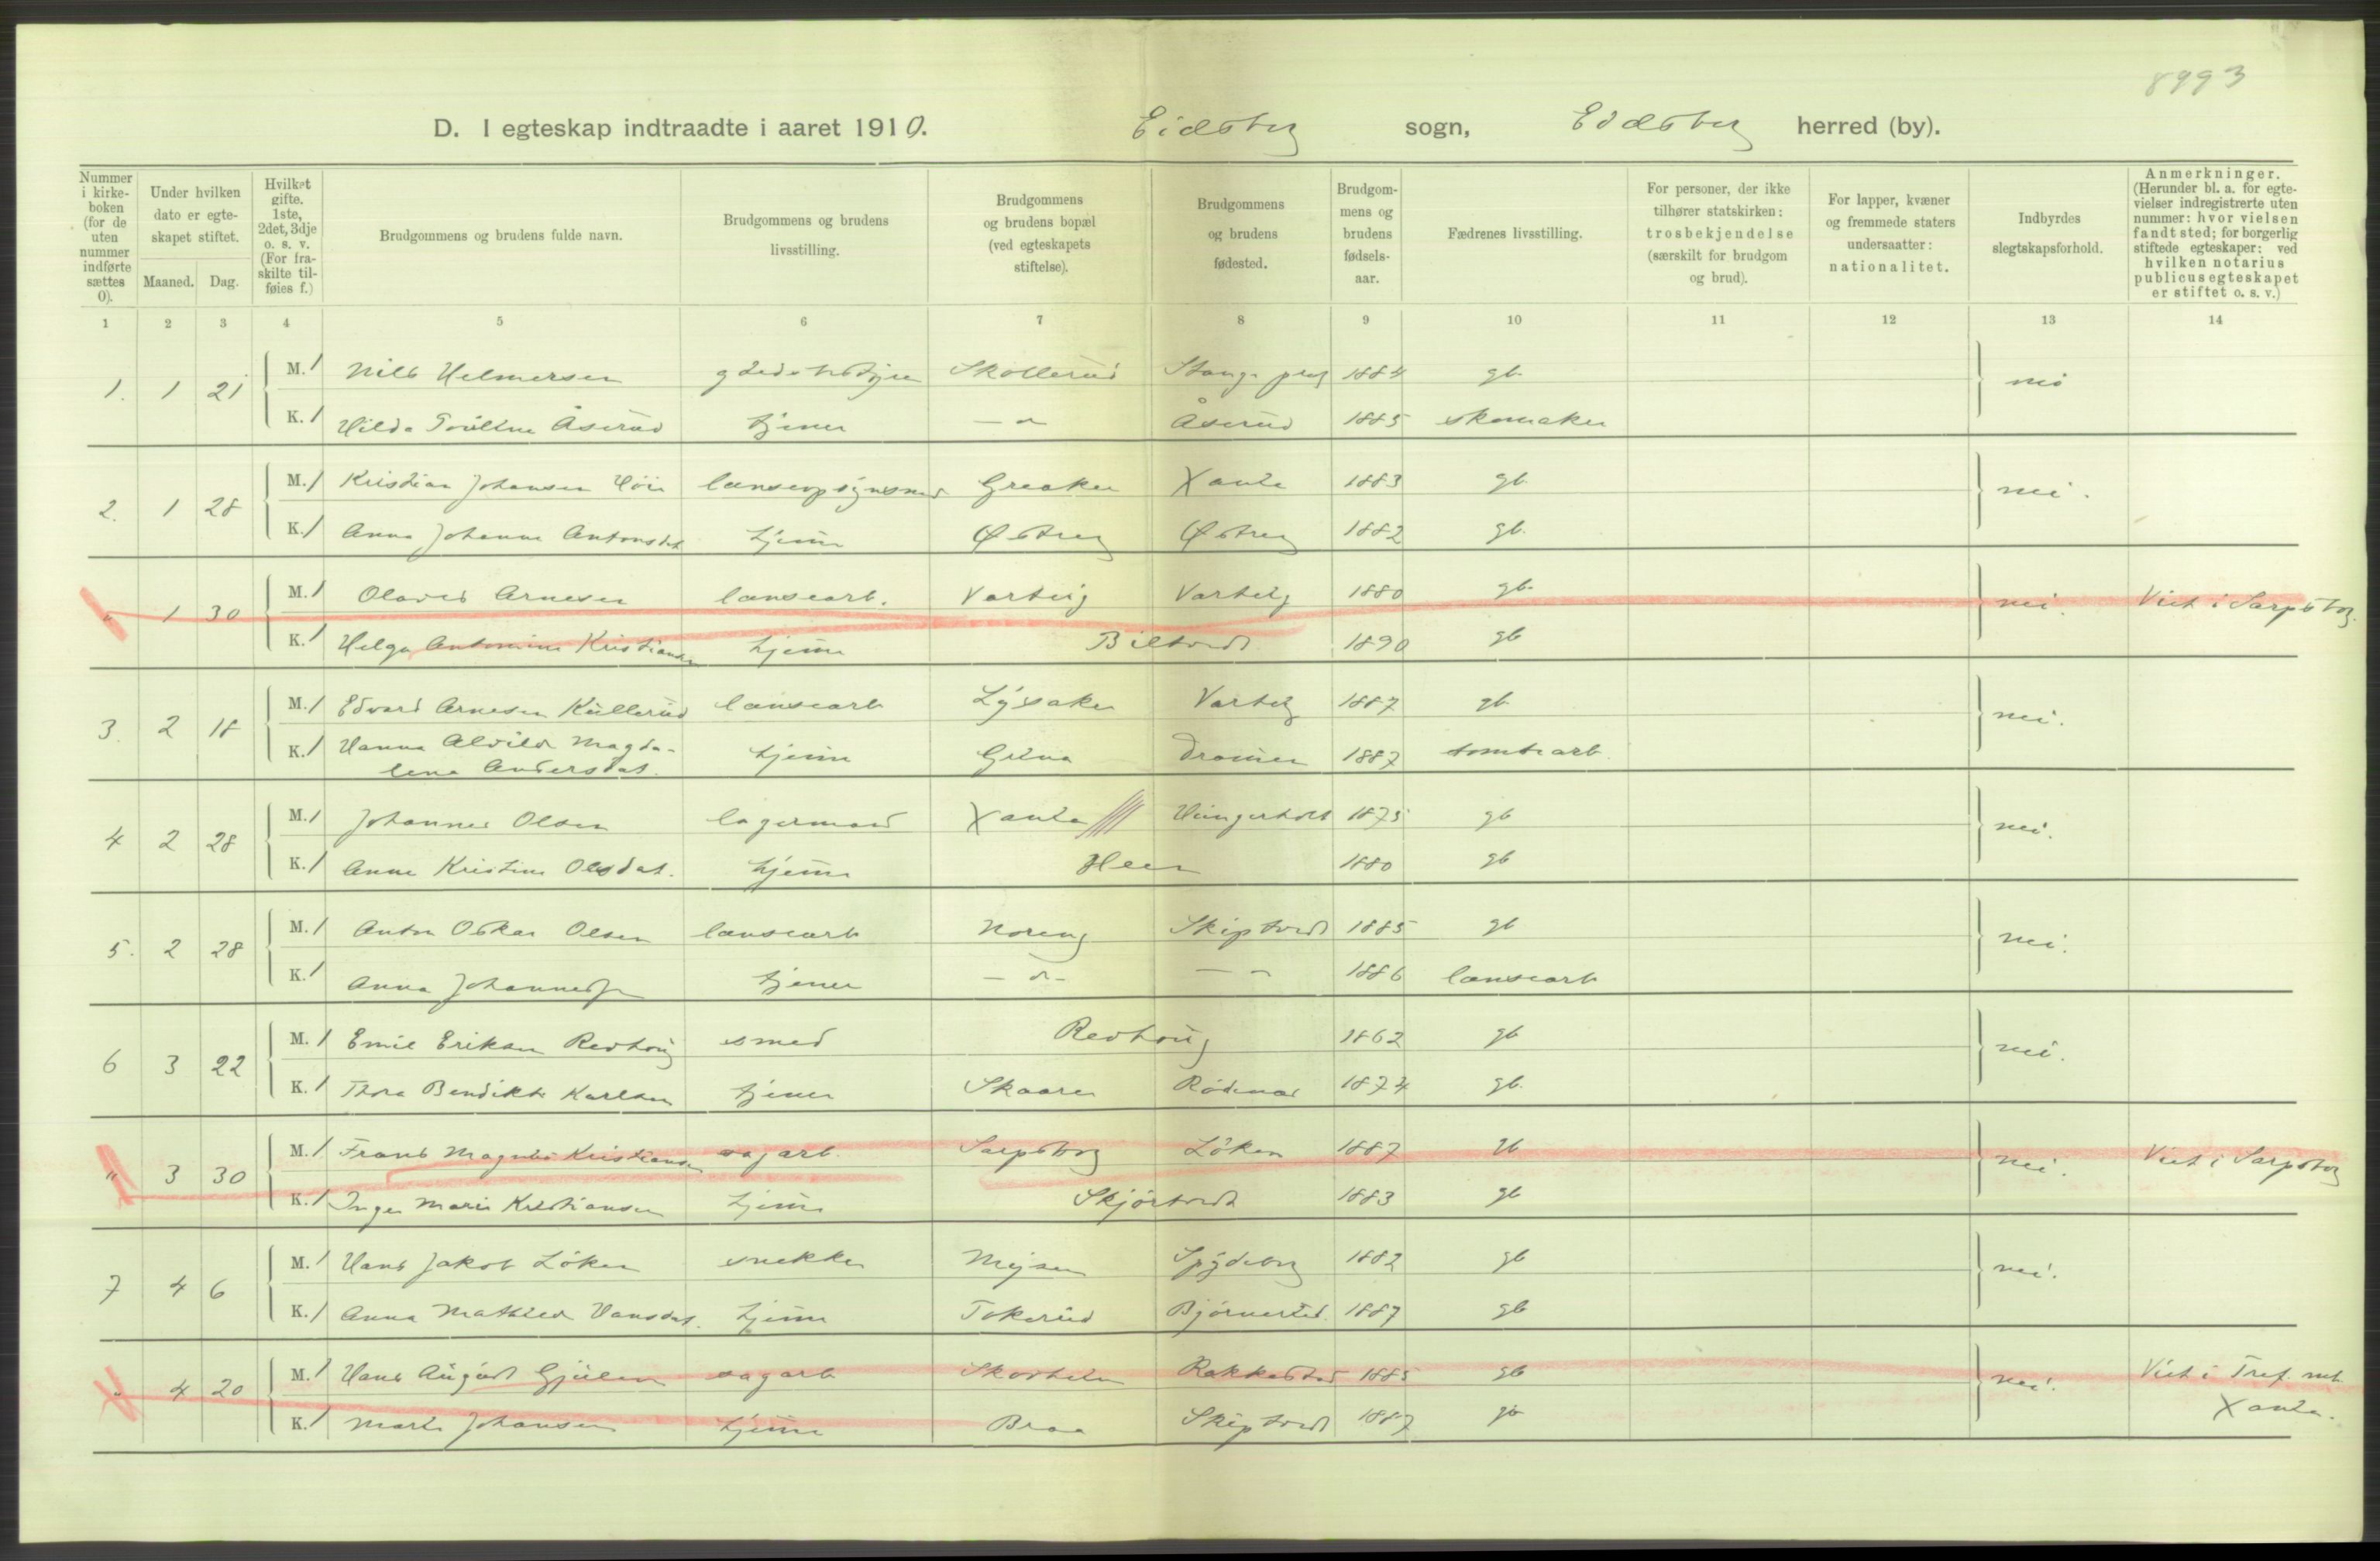 8993
D. I egteskap indtraadte i aaret 1910. Eidsberg sogn, Eidsberg herred (by).
Nummer i kirke-boken (for de uten nummer indførte sættes 0).
Under hvilken dato er egte-skapet stiftet.
Maaned. Dag.
Hvilket gifte. 1ste, 2det, 3dje o. s. v. (For fra-skilte til-føies f.)
Brudgommens og brudens fulde navn.
Brudgommens og brudens livsstilling.
Brudgommens og brudens bopæl (ved egteskapets stiftelse).
Brudgommens og brudens fødested.
Brudgom-mens og brudens fødsels-aar.
Fædrenes livsstilling.
For personer, der ikke tilhører statskirken: trosbekjendelse (særskilt for brudgom og brud).
For lapper, kvæner og fremmede staters undersaatter: nationalitet.
Indbyrdes slegtskapsforhold.
Anmerkninger. (Herunder bl. a. for egte-vielser indregistrerte uten nummer: hvor vielsen fandt sted; for borgerlig stiftede egteskaper: ved hvilken notarius publicus egteskapet er stiftet o. s. v.)
1 2 3 4 5 6 7 8 9 10 11 12 13 14
1. 1 21 M. 1 Nils Helmersen Skollerud Stange 1884 gb. nei
K. 1 Hilda Åserud tjener Åserud 1885 skomaker
2. 1 28 M. 1 Kristian Johansen Höie lænseopsynsmd Greaker Xania 1883 gb. nei.
K. 1 Anna Johanne Antonsdat hjemme Østreng Østreng 1882 gb.
" 1 30 M. 1 Olaves Arnesen lænsearb. Varteig Varteig 1880 gb. nei. Viet i Sarpsborg.
K. 1 Helga Antonine Kristiansen hjemme Biltvedt 1890 gb
3. 2 18 M. 1 Edvard Arnesen Kullerud lænsearb Lysaker Varteig 1887 gb nei.
K. 1 Hanna Alvilde Magda-
lena Andersdat. hjemme Dramen 1887 tomtearb.
4 2 28 M. 1 Johannes Olsen lagermand Xania 1875 gb nei.
K. 1 Anne Kristine Olsdat. hjemme Heen 1880 gb
5. 2 28 M. 1 Anton Oskar Olsen lænsearb Noreng Skiptvedt 1885 gb nei.
K. 1 Anna Johannesen tjener — " — — " 1886 lænsearb
6 3 22 M. 1 Emil Eriksen Revhoug smed Revhoug 1862 gb nei.
K. 1 Thora Bendikte Karlsen tjener Skaaren Rödenes 1874 gb.
" 3 30 M. 1 Frans Magnus Kristiansen sagarb. Sarpsborg Löken 1887 gb nei. Viet i Sarpsborg
K. 1 Inga Marie Kristiansen hjemme Skjörtvedt 1883 gb
7 4 6 M. 1 Hans Jakob Löken snekker Mysen Spydeberg 1882 gb nei.
K. 1 Anna Mathilde Hansdat. hjemme Tokerud Björnerud. 1887 gb
" 4 20 M. 1 Hans August Gjulem sagarb Rakkestad 1885 gb nei. Viet i Tref. mt.
K. 1 Marte Johansen hjemme Braa Skiptvedt 1887 gb Xania.